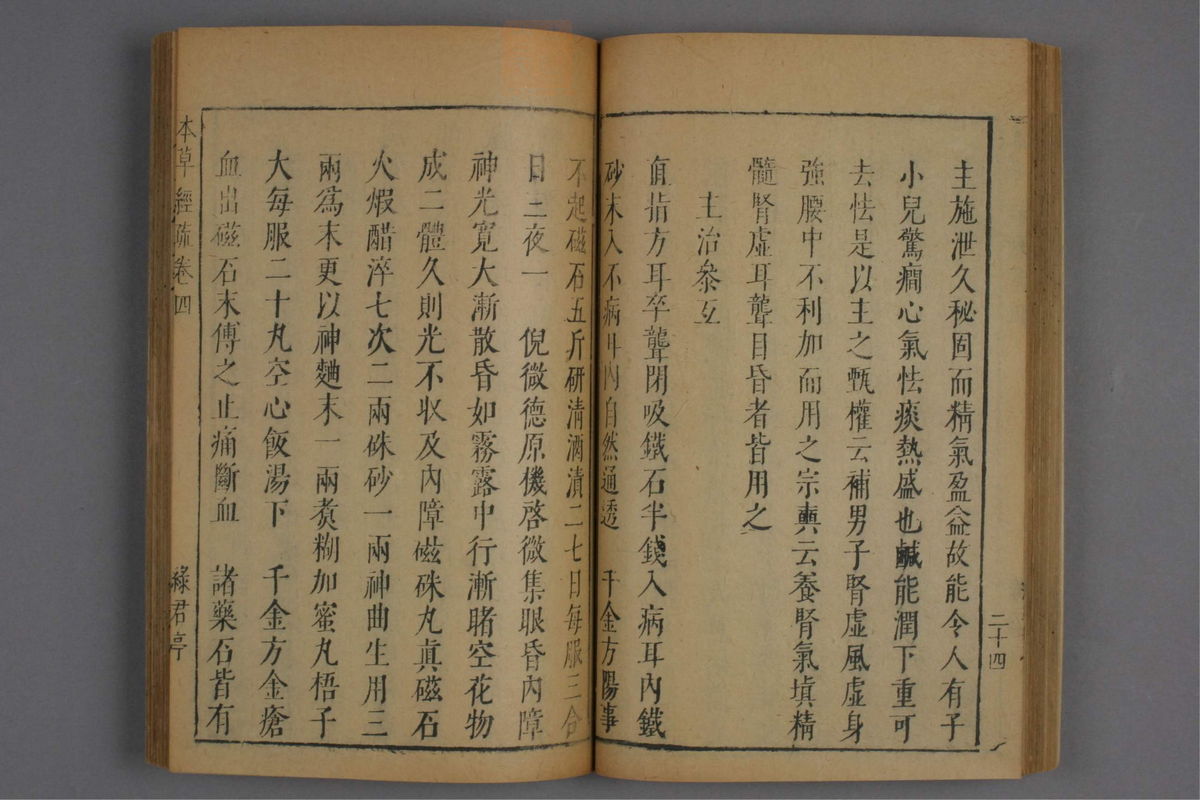 主施泄久秘固而精氣盈益故能令人有子
小兒驚癎心氣怯痰熱盛也鹹能潤下重可
去怯是以主之甄權云補男子腎虛風虛身
強腰中不利加而用之宗奭云養腎氣塡精
髓腎虛耳聾目昏者皆用之
主治參互
直指方耳卒聾閉吸鐵石半錢入病耳內鐵
砂末入不病耳內自然通透 千金方陽事
不起磁石五斤研清酒漬二七日每服三合
日三夜一 倪微德原機啓微集眼昏內障
神光寬大漸散昏如霧露中行漸睹空花物
成二體久則光不収及內障磁硃丸眞磁石
火煆醋淬七次二兩硃砂一兩神曲生用三
兩爲末更以神麯末一兩煑糊加蜜丸梧子
大每服二十丸空心飯湯下 千金方金瘡
血出磁石末傅之止痛斷血 諸藥石皆有
本草經疏卷四
綠君亭
二十四